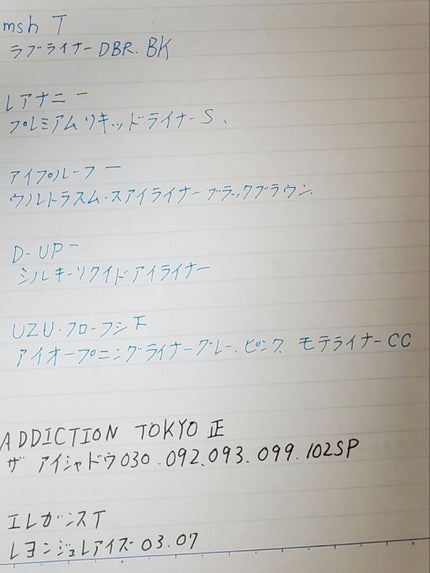 msh T
ラブライナーDBR. BK
レアナニ ー
プレミアムリキッドライナーS.
アイプルーフ 一
ウルトラスムースアイライナーブラックブラウン.
D-UP 一
シルキーリクイドアイライナー
UZU.フローフシ 下
アイオープニングライナーグレー.ピンク モテライナーCC
ADDICTION TOKYO 正
ザ アイシャドウ030.092.093.099.102SP
エレガンス T
レヨンジュレアイズ 03.07